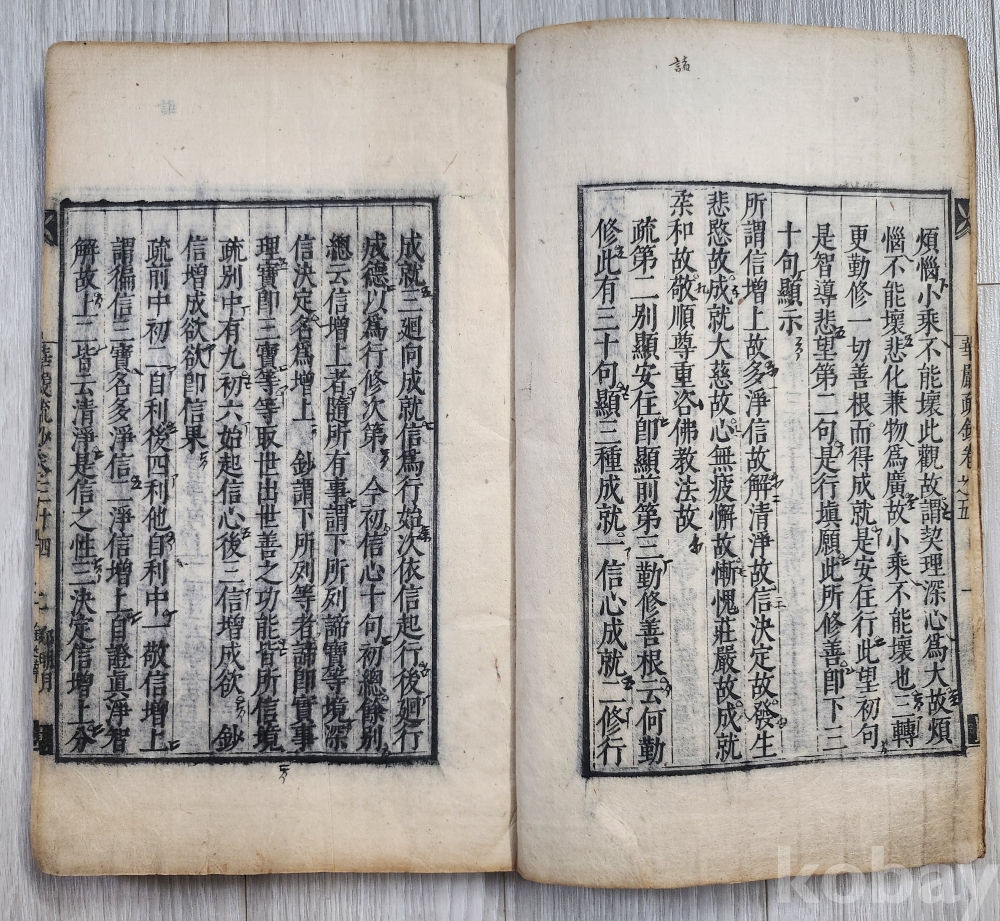 諸
煩惱小乘不能壞此觀故謂契理深心爲大故煩
惱不能壞悲化兼物爲廣故小乘不能壞也三轉
更勤修一切善根而得成就是安住行此望初句
是智導悲望第二句是行塡願此所修善卽下三
十句顯示
所謂信增上故多淨信故解清淨故信決定故發生
悲愍故成就大慈故心無疲懈故慚愧莊嚴故成就
柔和故敬順尊重咨佛教法故
疏第二別顯安住卽顯前第三勤修善根云何勤
修此有三十句顯三種成就一信心成就二修行
成就三廻向成就信爲行始次依信起行後廻行
成德以爲行修次第今初信心十句初總餘別
總云信增上者隨所有事謂下所列諦寶等境深
信決定名爲增上 鈔謂下所列等者諦卽實事
理寶卽三寶等等取世出世善之功能皆所信境
疏別中有九初六始起信心後三信增成欲 鈔
信增成欲欲卽信果
疏前中初二自利後四利他自利中一敬信增上
謂徧信三寶名多淨信二淨信增上自證眞淨智
解故上二皆云清淨是信之性三決定信增上分
華嚴疏鈔卷
華嚴疏鈔卷三十四
kobay